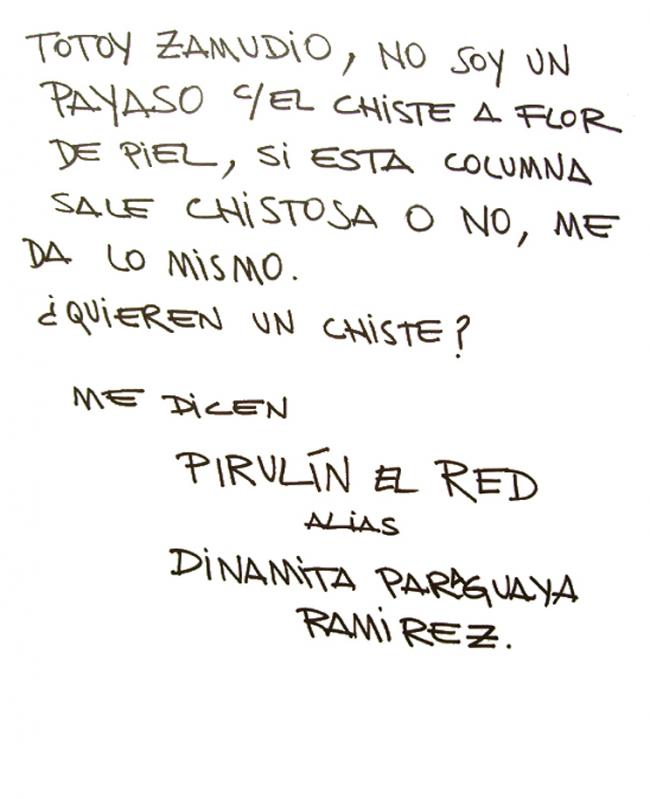 TOTOY ZAMUDIO, NO SOY UN
PAYASO C/EL CHISTE A FLOR
DE PIEL, SI ESTA COLUMNA
SALE CHISTOSA O NO, ME
DA LO MISMO.
¿QUIEREN UN CHISTE?
ME DICEN
PIRULÍN EL RED
ALIAS
DINAMITA PARAGUAYA
RAMIREZ.